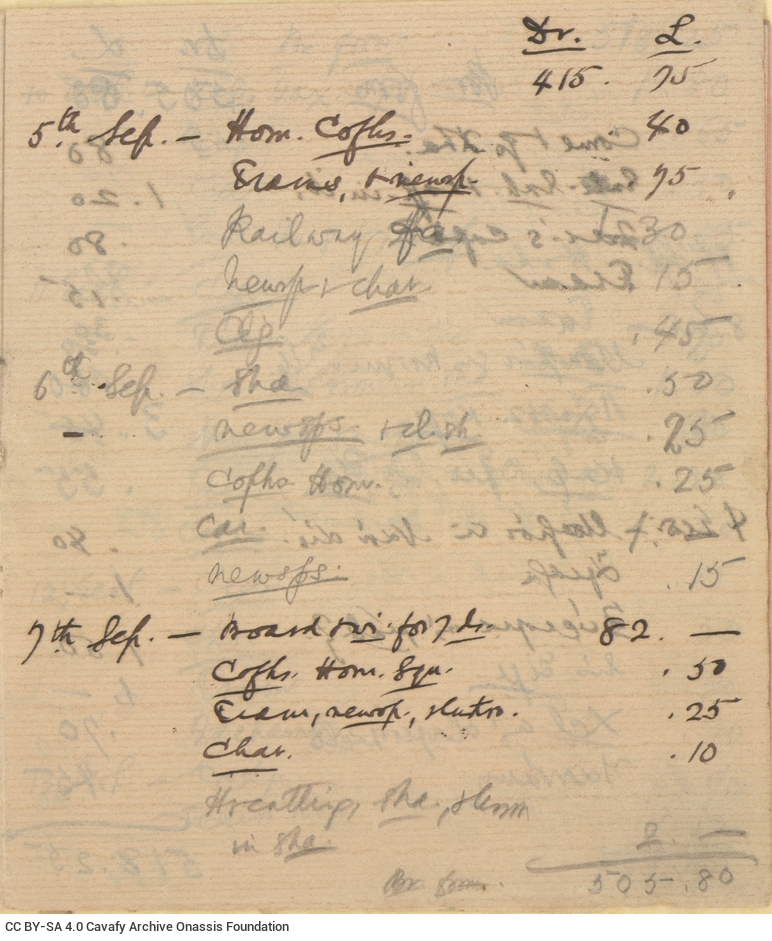 Dr. L.
415. 75
5th Sep. — Hom. Cofhs. 40
Trams, + newsp. 75
Railway 30
newsp + char 15
Cig. .45
6th Sep. — Sha .50
— newsps. + .25
Cofhs Hom. .25
Car.
newsps. .15
7th Sep. — Board + wi. for 7 ds. 82. —
Cofhs. Hom. Squ. .50
Tram, newsp, .25
Char. .10
sha.,
in sha. 2. —
Br. forw. 505.80
CC BY-SA 4.0 Cavafy Archive Onassis Foundation